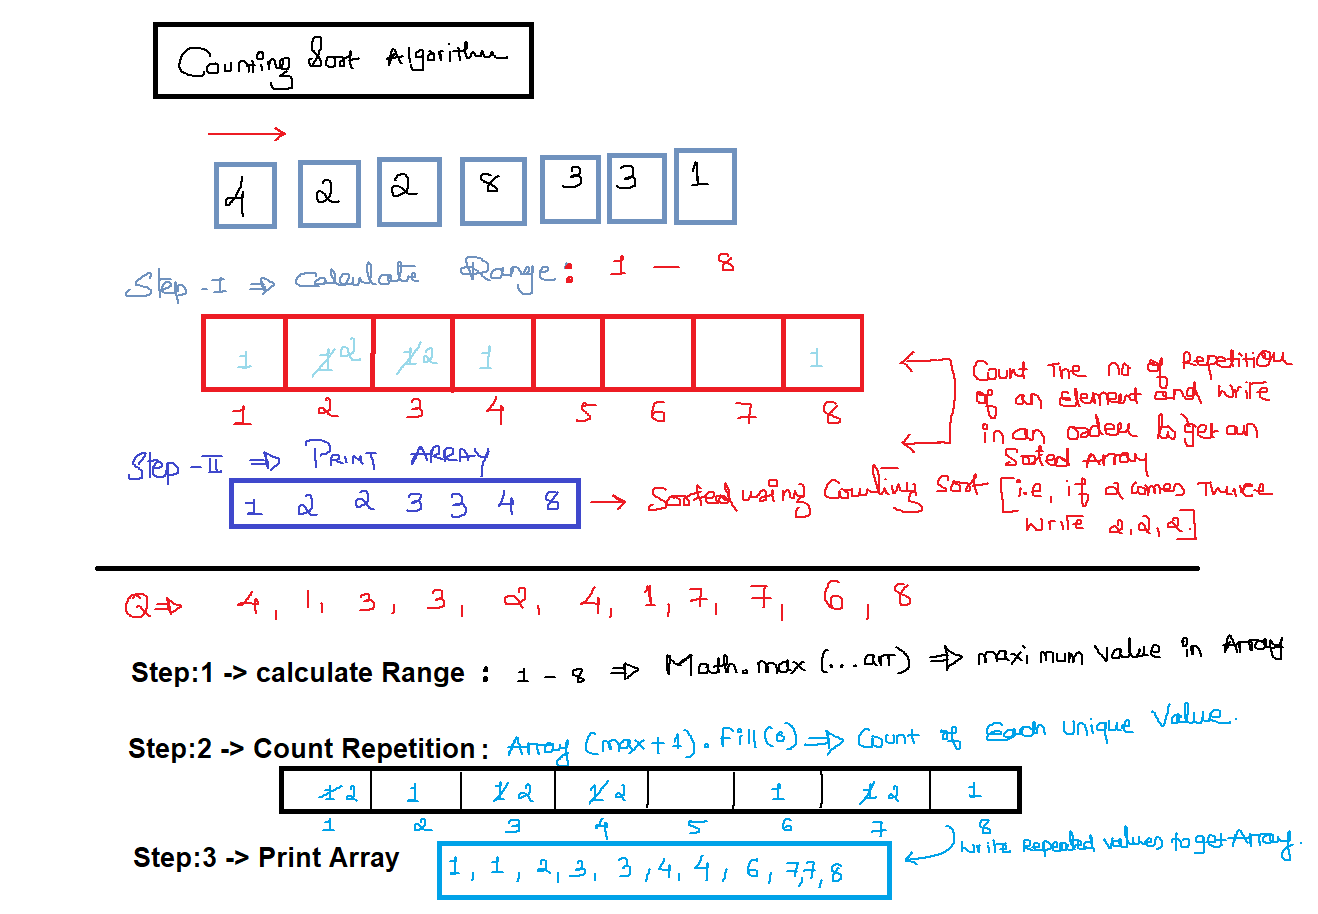 Counting Sort Algorithm
4 2 2 8 3 3 1
Step-I ⇒ Calculate Range: 1 – 8
1 1 2 1 2 1 1
1 2 3 4 5 6 7 8
Count The no of Repetition
of an Element and write
in an order to get an
Sorted Array
Step-II ⇒ PRINT ARRAY
1 2 2 3 3 4 8 → Sorted using Counting Sort [i.e, if 2 comes Thrice
write 2,2,2.]
Q⇒ 4, 1, 3, 3, 2, 4, 1, 7, 7, 6, 8
Step:1 -> calculate Range : 1 - 8 ⇒ Math.max (...arr) ⇒ maximum value in Array
Step:2 -> Count Repetition : Array (max+1).Fill(0) ⇒ Count of Each unique Value.
1 2 1 1 2 1 2 1 1 2 1
1 2 3 4 5 6 7 8
Write Repeated values to get Array.
Step:3 -> Print Array 1, 1, 2, 3, 3, 4, 4, 6, 7,7, 8